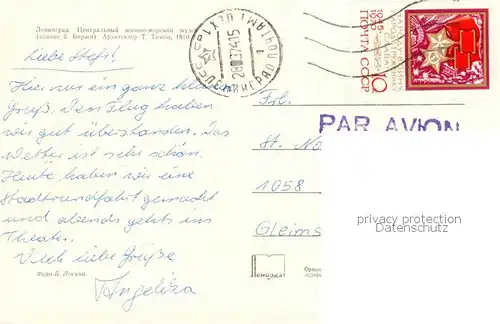 Ленинград. Центральный военно-морской музей
(здание б. Биржи) Архитектор Т. Томон, 1810
Liebe Steffi!
Hier nun ein ganz kleiner
Gruß. Den Flug haben
wir gut überstanden. Das
Wetter ist sehr schön.
Heute haben wir eine
Stadtrundfahrt gemacht
und abends gehts ins
Theater.
Viele liebe Grüße
Angelika
Фото Б. Лосина
ПОЧТА СССР
1945
1975
10
PAR AVION
Frl.
St. No
1058
Gleims
privacy protection
Datenschutz
Лениздат